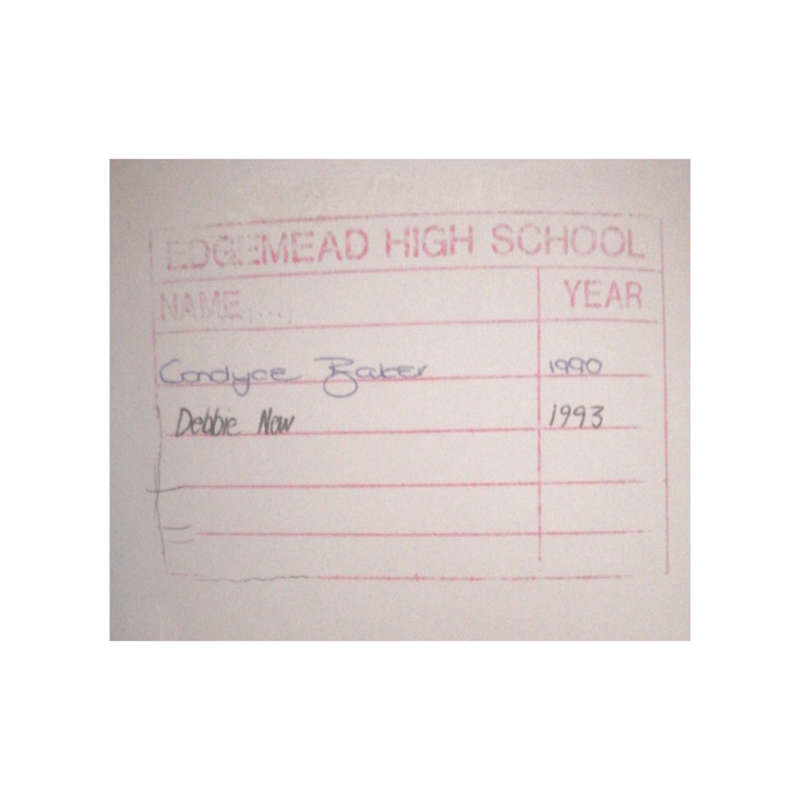 EDGEMEAD HIGH SCHOOL
NAME YEAR
Candyce Baker 1990
Debbie Now 1993